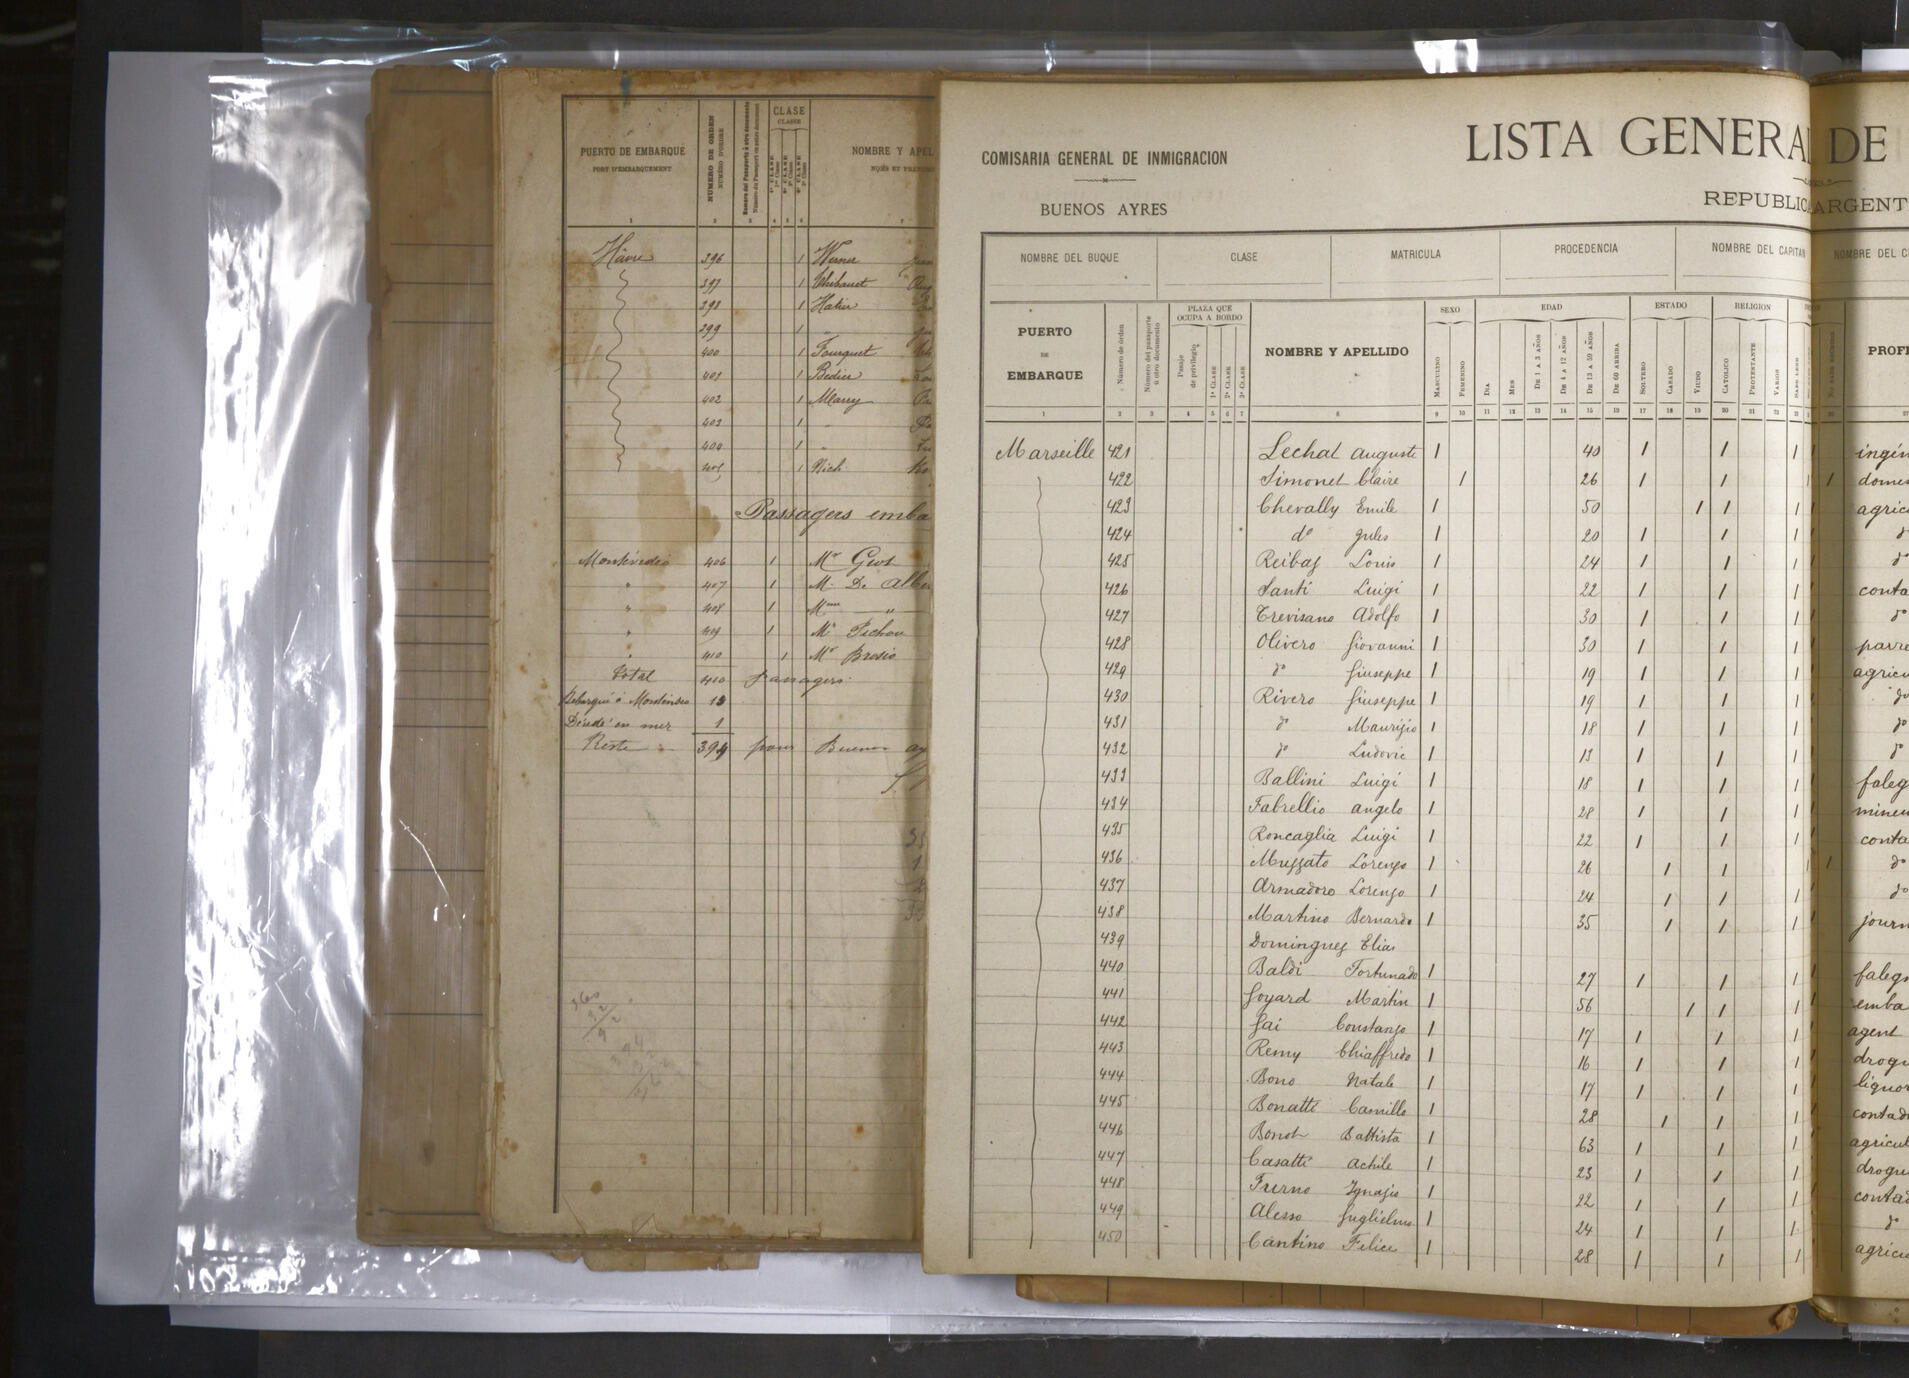 PUERTO DE EMBARQUE
PORT D'EMBARQUEMENT
NUMERO DE ORDEN
NUMÉRO D'ORDRE
CLASE
CLASSE
NOMBRE Y APEL
1 2 3 4 5 6 7
Hâvre 396 1 Werner
397 1 Thibaut
398 1 Hatier
399 1 "
400 1 Fourquet
401 1 Bedier
402 1 Marry
403 1 "
404 1 "
405 1 Rich
Passagers emba
Montévidéo 406 1 Mr Grot
" 407 1 M. De Albu
" 408 1 Mme "
" 409 1 Mr Pichon
" 410 1 Mr Brosio
Total 410 passagers
Débarqué à Montévidéo 15
Décédé en mer 1
Reste 394 pour Buenos ay
COMISARIA GENERAL DE INMIGRACION
BUENOS AYRES
LISTA GENERAL DE
REPUBLICA ARGENT
NOMBRE DEL BUQUE CLASE MATRICULA PROCEDENCIA NOMBRE DEL CAPITAN NOMBRE DEL C
PUERTO
DE
EMBARQUE
Número de órden
Número del pasaporte
ú otro documento
PLAZA QUE
OCUPA A BORDO
Pasaje
de privilegio
1ª CLASE
2ª CLASE
3ª CLASE
NOMBRE Y APELLIDO
SEXO
MASCULINO
FEMENINO
EDAD
DIA
MES
DE 1 A 3 AÑOS
DE 4 A 12 AÑOS
DE 13 A 59 AÑOS
DE 60 ARRIBA
ESTADO
SOLTERO
CASADO
VIUDO
RELIGION
CATOLICO
PROTESTANTE
VARIOS
PROFE
1 2 3 4 5 6 7 8 9 10 11 12 13 14 15 16 17 18 19 20 21 22 23
Marseille 421 Lechat Auguste 1 40 1 1 1 ingén
422 Simonet Claire 1 26 1 1 1 domes
423 Chevally Emile 1 50 1 1 1 agric
424 do Jules 1 20 1 1 1 do
425 Reibaz Louis 1 24 1 1 1 do
426 Santi Luigi 1 22 1 1 1 conta
427 Trevisano Adolfo 1 30 1 1 1 do
428 Olivero Giovanni 1 30 1 1 1 parre
429 do Giuseppe 1 19 1 1 1 agricu
430 Rivero Giuseppe 1 19 1 1 1 do
431 do Maurizio 1 18 1 1 1 do
432 do Ludovic 1 13 1 1 1 do
433 Ballini Luigi 1 18 1 1 1 faleg
434 Fabrellio Angelo 1 28 1 1 1 mineu
435 Roncaglia Luigi 1 22 1 1 1 conta
436 Muzzato Lorenzo 1 26 1 1 1 do
437 Armadoro Lorenzo 1 24 1 1 1 do
438 Martino Bernardo 1 35 1 1 1 journ
439 Dominguez Elias
440 Baldi Fortunado 1 27 1 1 1 falegn
441 Goyard Martin 1 56 1 1 1 emba
442 Gai Constanzo 1 17 1 1 1 agent
443 Remy Chiaffredo 1 16 1 1 1 drogu
444 Bono Natale 1 17 1 1 1 liquor
445 Bonatti Camillo 1 28 1 1 1 contad
446 Bonot Battista 1 63 1 1 1 agricul
447 Casatti Achile 1 23 1 1 1 drogu
448 Fuerno Ignazio 1 22 1 1 1 contad
449 Alesso Guglielmo 1 24 1 1 1 do
450 Cantino Felice 1 28 1 1 1 agricu